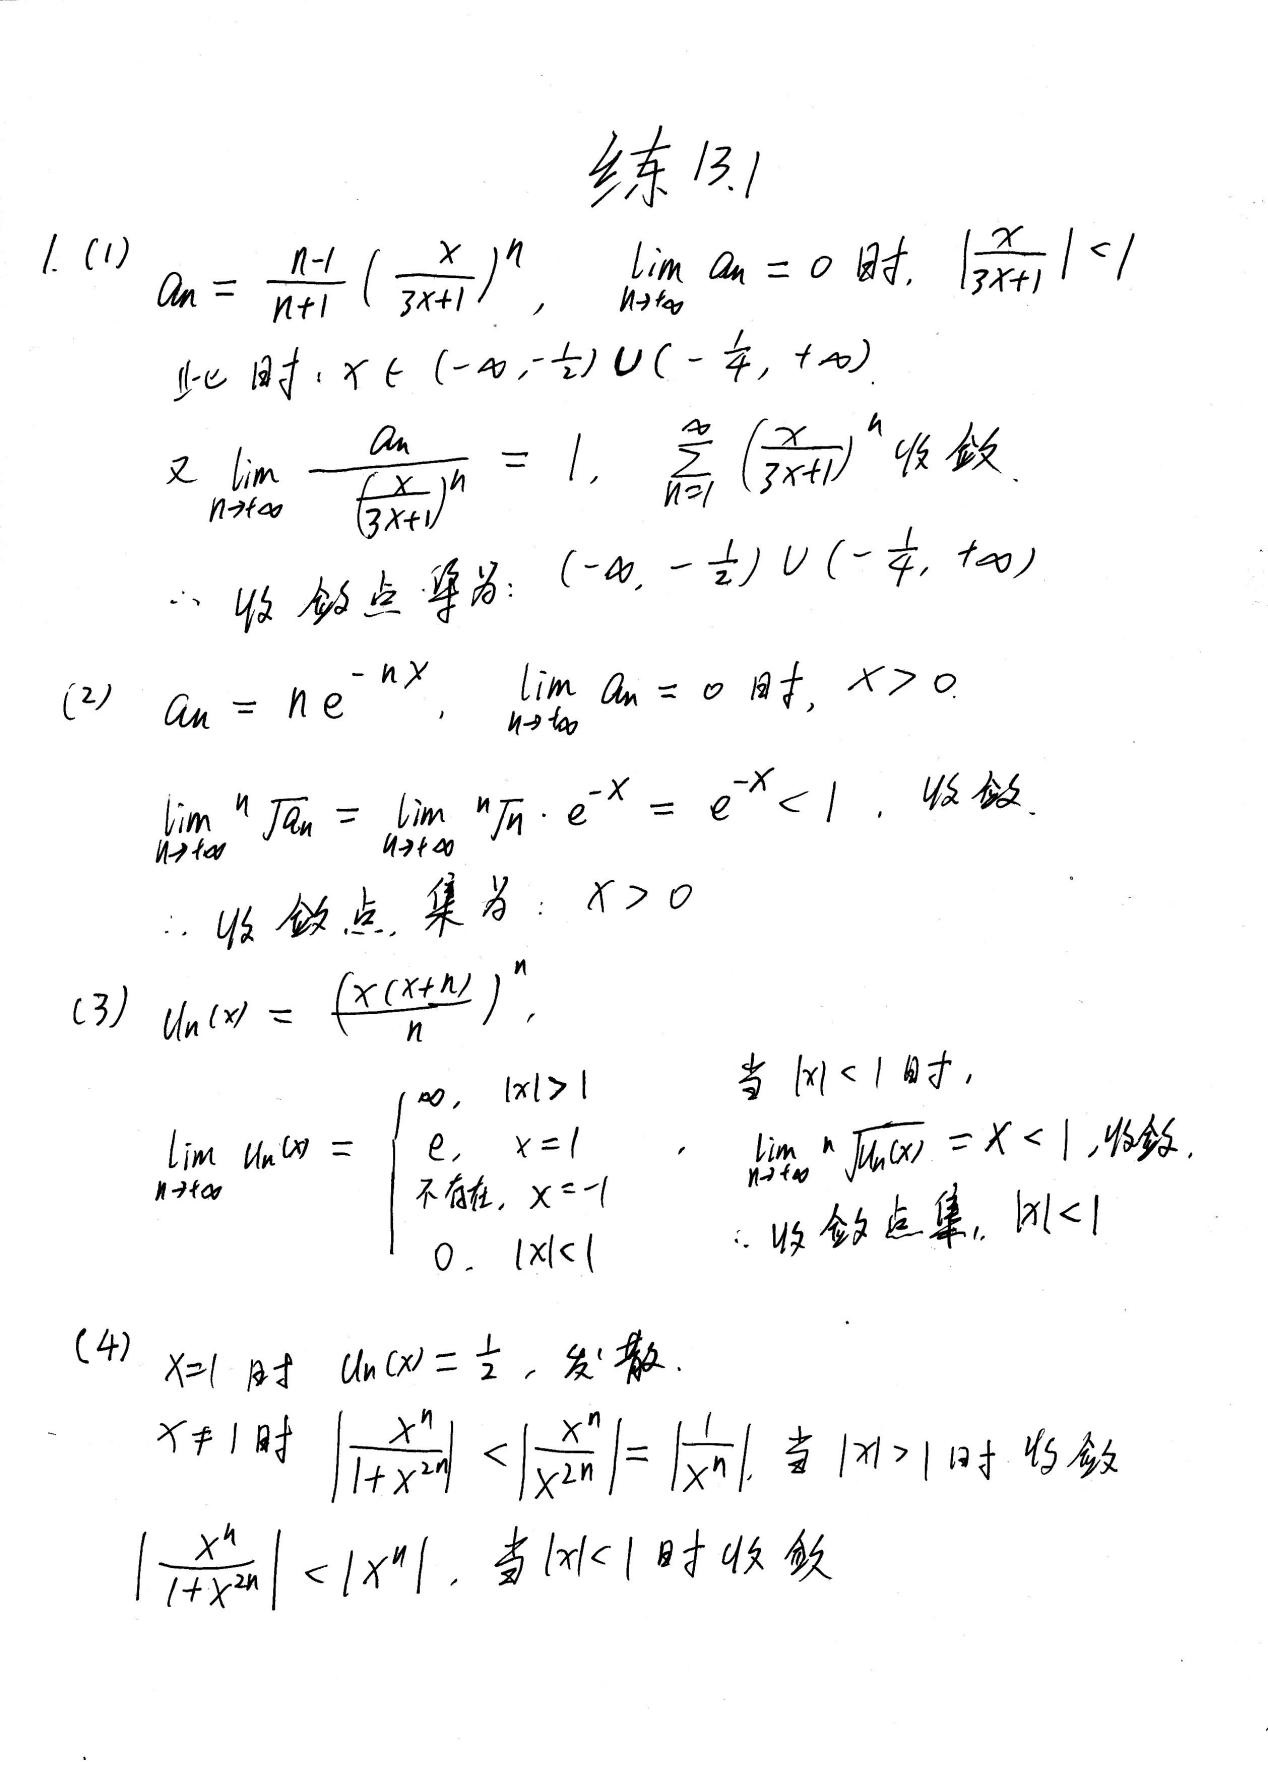 练 13.1
1. (1) aₙ = \frac{n-1}{n+1} (\frac{x}{3x+1})ⁿ, \lim_{n→+∞} aₙ = 0 时, |\frac{x}{3x+1}| < 1
此时, x ∈ (-∞, -\frac{1}{2}) ∪ (-\frac{1}{4}, +∞).
又 \lim_{n→+∞} \frac{aₙ}{(\frac{x}{3x+1})ⁿ} = 1, \sum_{n=1}^{∞} (\frac{x}{3x+1})ⁿ 收敛.
∴ 收敛点集为: (-∞, -\frac{1}{2}) ∪ (-\frac{1}{4}, +∞)
(2) aₙ = n e^{-nx}, \lim_{n→+∞} aₙ = 0 时, x > 0.
\lim_{n→+∞} \sqrt[n]{aₙ} = \lim_{n→+∞} \sqrt[n]{n} · e^{-x} = e^{-x} < 1, 收敛.
∴ 收敛点集为: x > 0
(3) uₙ(x) = (\frac{x(x+n)}{n})ⁿ,
\lim_{n→+∞} uₙ(x) = { ∞, |x| > 1
e, x = 1
不存在, x = -1
0. |x| < 1
当 |x| < 1 时,
\lim_{n→+∞} \sqrt[n]{uₙ(x)} = x < 1, 收敛.
∴ 收敛点集, |x| < 1
(4) x=1 时 uₙ(x) = \frac{1}{2}, 发散.
x ≠ 1 时 |\frac{xⁿ}{1+x^{2n}}| < |\frac{xⁿ}{x^{2n}}| = |\frac{1}{xⁿ}|, 当 |x| > 1 时 收敛
|\frac{xⁿ}{1+x^{2n}}| < |xⁿ|, 当 |x| < 1 时 收敛